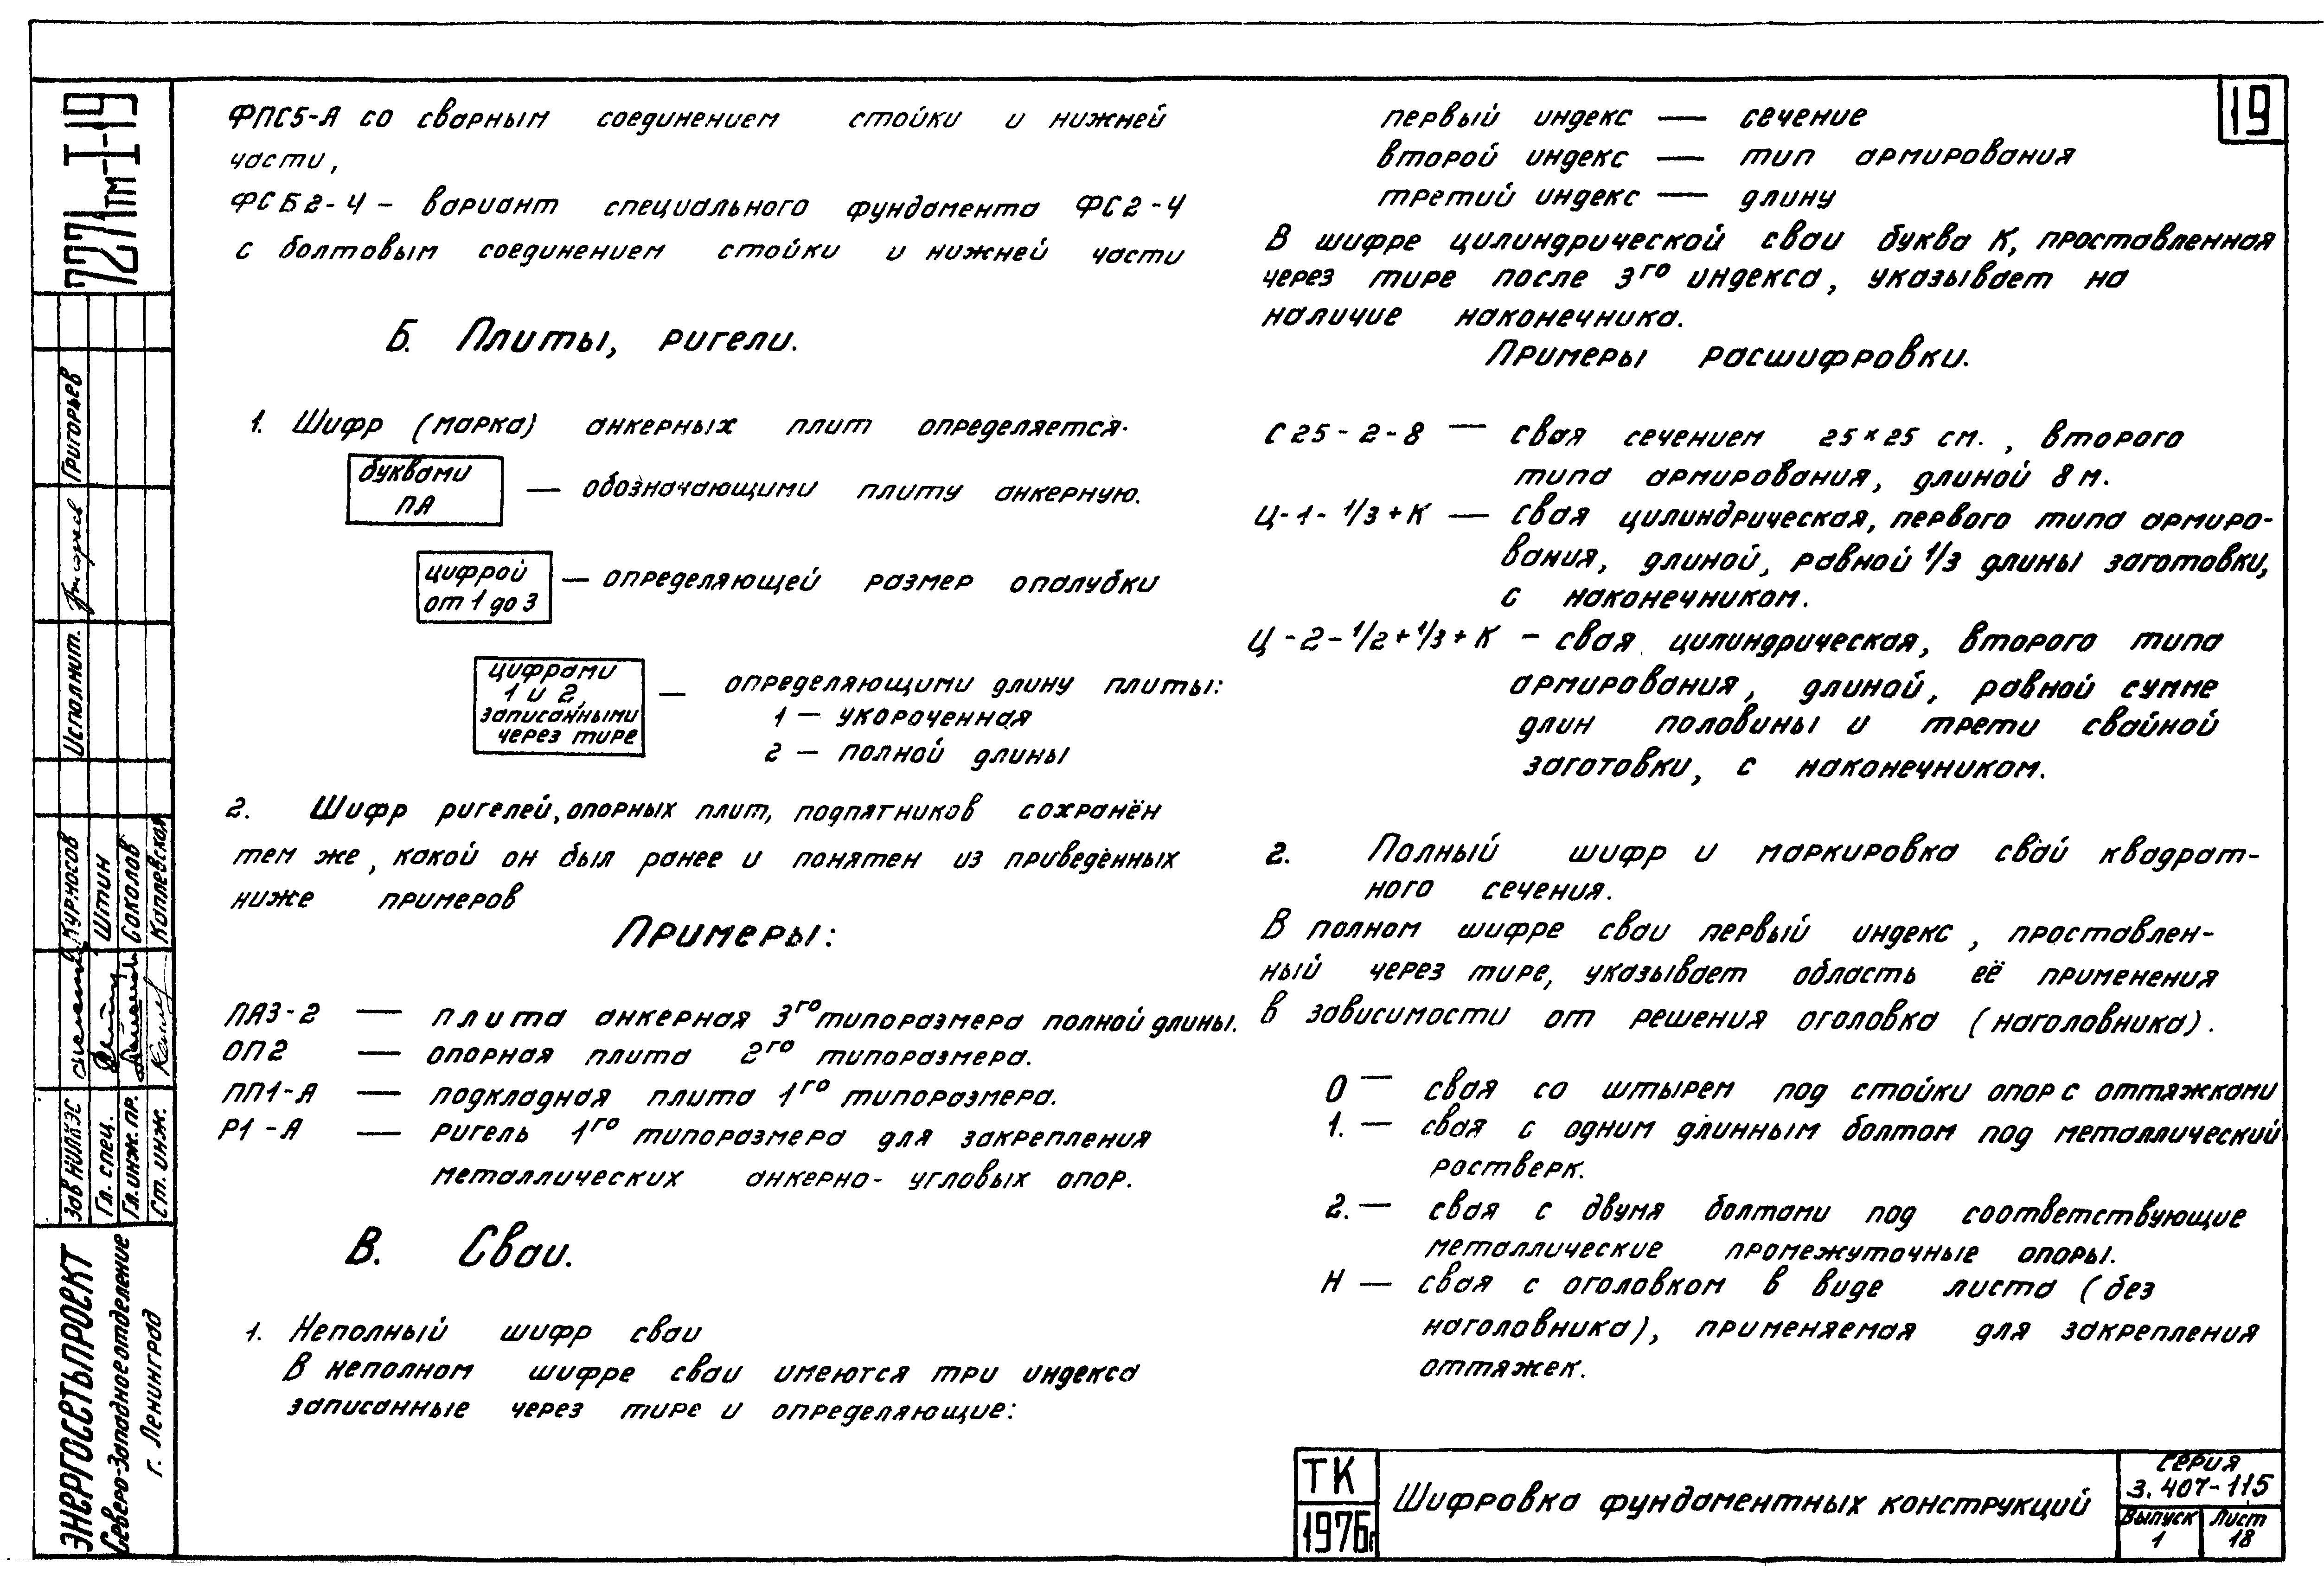 19
7271тм-I-19
ФПС5-А со сварным соединением стойки и нижней
части,
ФСБ2-4 – вариант специального фундамента ФС2-4
с болтовым соединением стойки и нижней части
Б. Плиты, ригели.
1. Шифр (марка) анкерных плит определяется.
буквами
ПА
— обозначающими плиту анкерную.
цифрой
от 1 до 3
— определяющей размер опалубки
цифрами
1 и 2,
записанными
через тире
— определяющими длину плиты:
1 — укороченная
2 — полной длины
2. Шифр ригелей, опорных плит, подпятников сохранён
тем же, какой он был ранее и понятен из приведённых
ниже примеров
Примеры:
ПА3-2 — плита анкерная 3го типоразмера полной длины.
ОП2 — опорная плита 2го типоразмера.
ПП1-А — подкладная плита 1го типоразмера.
Р1-А — ригель 1го типоразмера для закрепления
металлических анкерно-угловых опор.
В. Сваи.
1. Неполный шифр сваи
В неполном шифре сваи имеются три индекса
записанные через тире и определяющие:
первый индекс — сечение
второй индекс — тип армирования
третий индекс — длину
В шифре цилиндрической сваи буква К, проставленная
через тире после 3го индекса, указывает на
наличие наконечника.
Примеры расшифровки.
С25-2-8 — свая сечением 25×25 см., второго
типа армирования, длиной 8 м.
Ц-1-1/3+К — свая цилиндрическая, первого типа армиро-
вания, длиной, равной 1/3 длины заготовки,
с наконечником.
Ц-2-1/2+1/3+К – свая цилиндрическая, второго типа
армирования, длиной, равной сумме
длин половины и трети свайной
заготовки, с наконечником.
2. Полный шифр и маркировка свай квадрат-
ного сечения.
В полном шифре сваи первый индекс, проставлен-
ный через тире, указывает область её применения
в зависимости от решения оголовка (наголовника).
О — свая со штырем под стойки опор с оттяжками
1. — свая с одним длинным болтом под металлический
ростверк.
2. — свая с двумя болтами под соответствующие
металлические промежуточные опоры.
Н — свая с оголовком в виде листа (без
наголовника), применяемая для закрепления
оттяжек.
ТК
1976г
Шифровка фундаментных конструкций
Серия
3.407-115
Выпуск
1
Лист
18
ЭНЕРГОСЕТЬПРОЕКТ
Северо-Западное отделение
г. Ленинград
Зав НИЛКЭС Курносов
Гл. спец. Штин
Гл. инж. пр. Соколов
Ст. инж. Каплевская
Исполнит. Григорьев